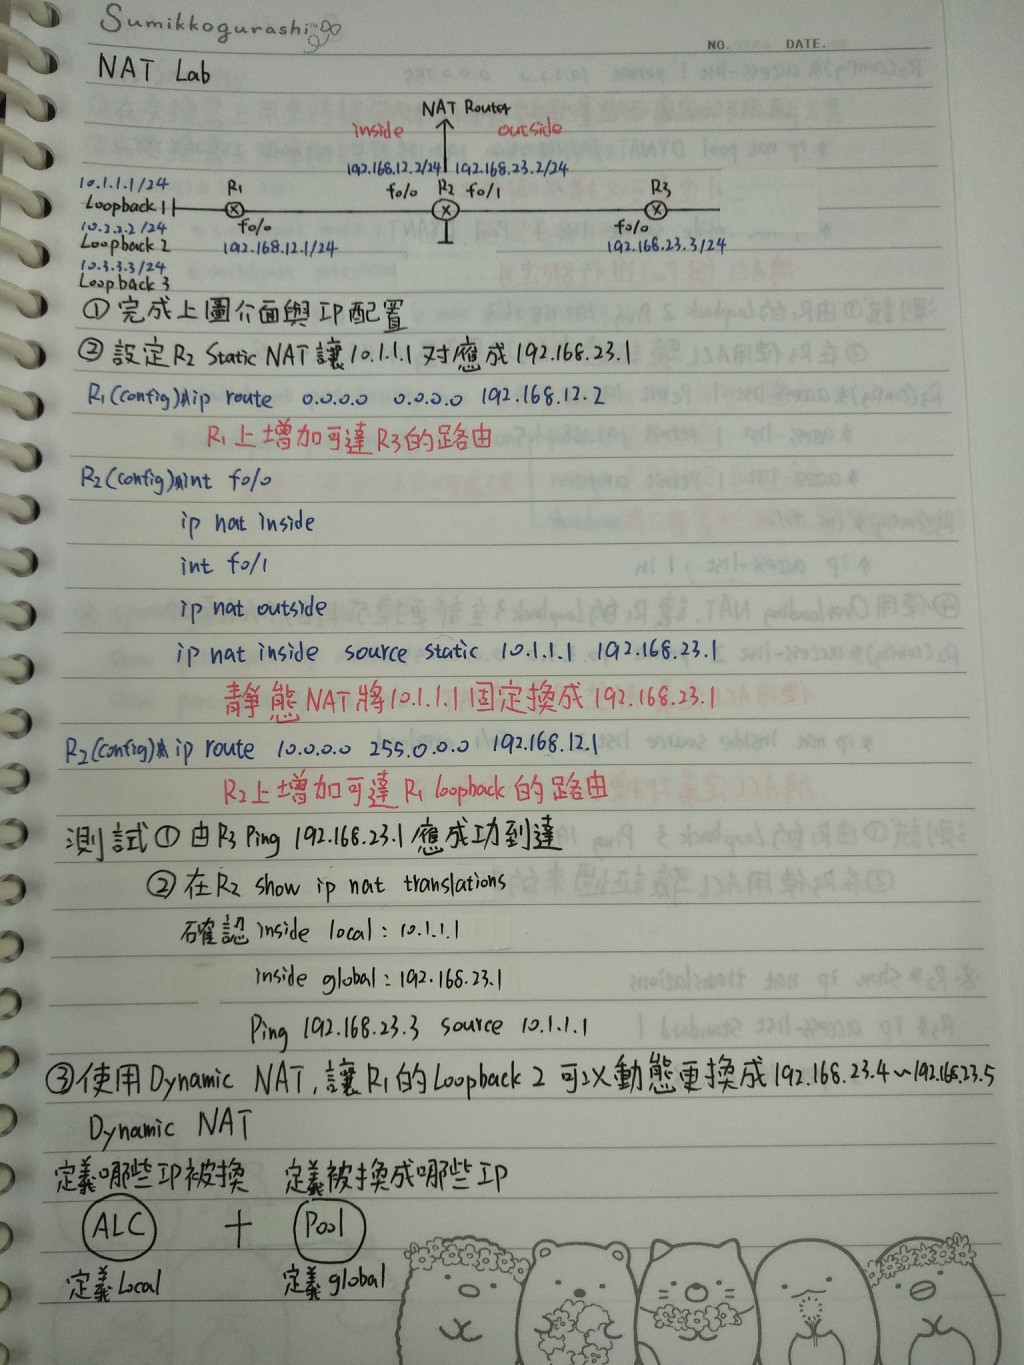 Sumikkogurashi
NO. DATE.
NAT Lab
NAT Router
inside outside
192.168.12.2/24 192.168.23.2/24
10.1.1.1/24 R1 fo/o R2 fo/1 R3
Loopback 1
10.2.2.2/24 fo/o fo/o
Loopback 2 192.168.12.1/24 192.168.23.3/24
10.3.3.3/24
Loopback 3
① 完成上圖介面與IP配置
② 設定R2 Static NAT讓10.1.1.1 对應成192.168.23.1
R1(config)#ip route 0.0.0.0 0.0.0.0 192.168.12.2
R1上增加可達R3的路由
R2(config)#int fo/o
ip nat inside
int fo/1
ip nat outside
ip nat inside source static 10.1.1.1 192.168.23.1
靜態NAT將10.1.1.1固定換成192.168.23.1
R2(config)#ip route 10.0.0.0 255.0.0.0 192.168.12.1
R2上增加可達R1 loopback的路由
測試① 由R3 Ping 192.168.23.1 應成功到達
② 在R2 show ip nat translations
確認 inside local : 10.1.1.1
inside global : 192.168.23.1
Ping 192.168.23.3 source 10.1.1.1
③使用Dynamic NAT,讓R1的Loopback 2 可以動態更換成192.168.23.4~192.168.23.5
Dynamic NAT
定義哪些IP被換 定義被換成哪些IP
ALC + Pool
定義Local 定義global